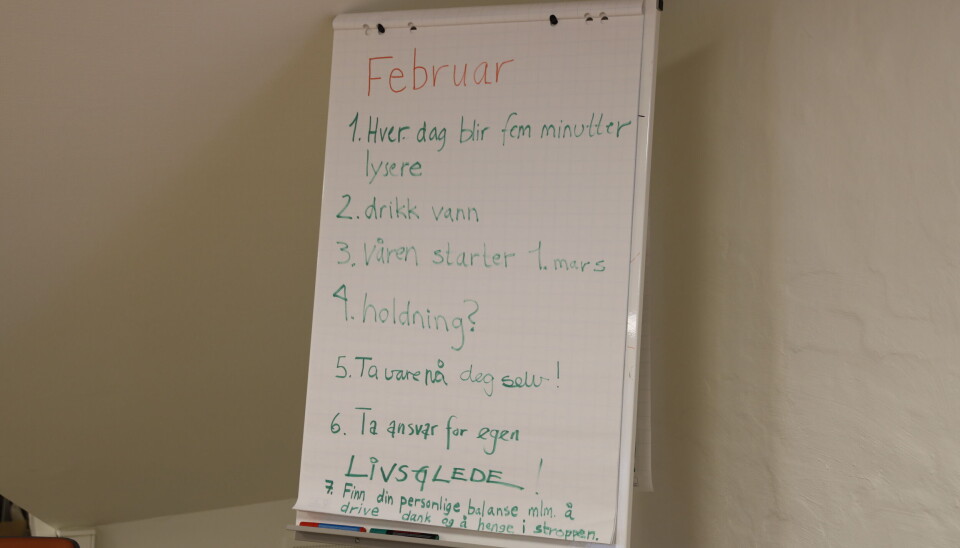 Februar
1. Hver dag blir fem minutter
lysere
2. drikk vann
3. Våren starter 1. mars
4. holdning?
5. Ta vare på deg selv!
6. Ta ansvar for egen
LiVSGLEDE!
7. Finn din personlige balanse mlm. å
drive dank og å henge i stroppen.